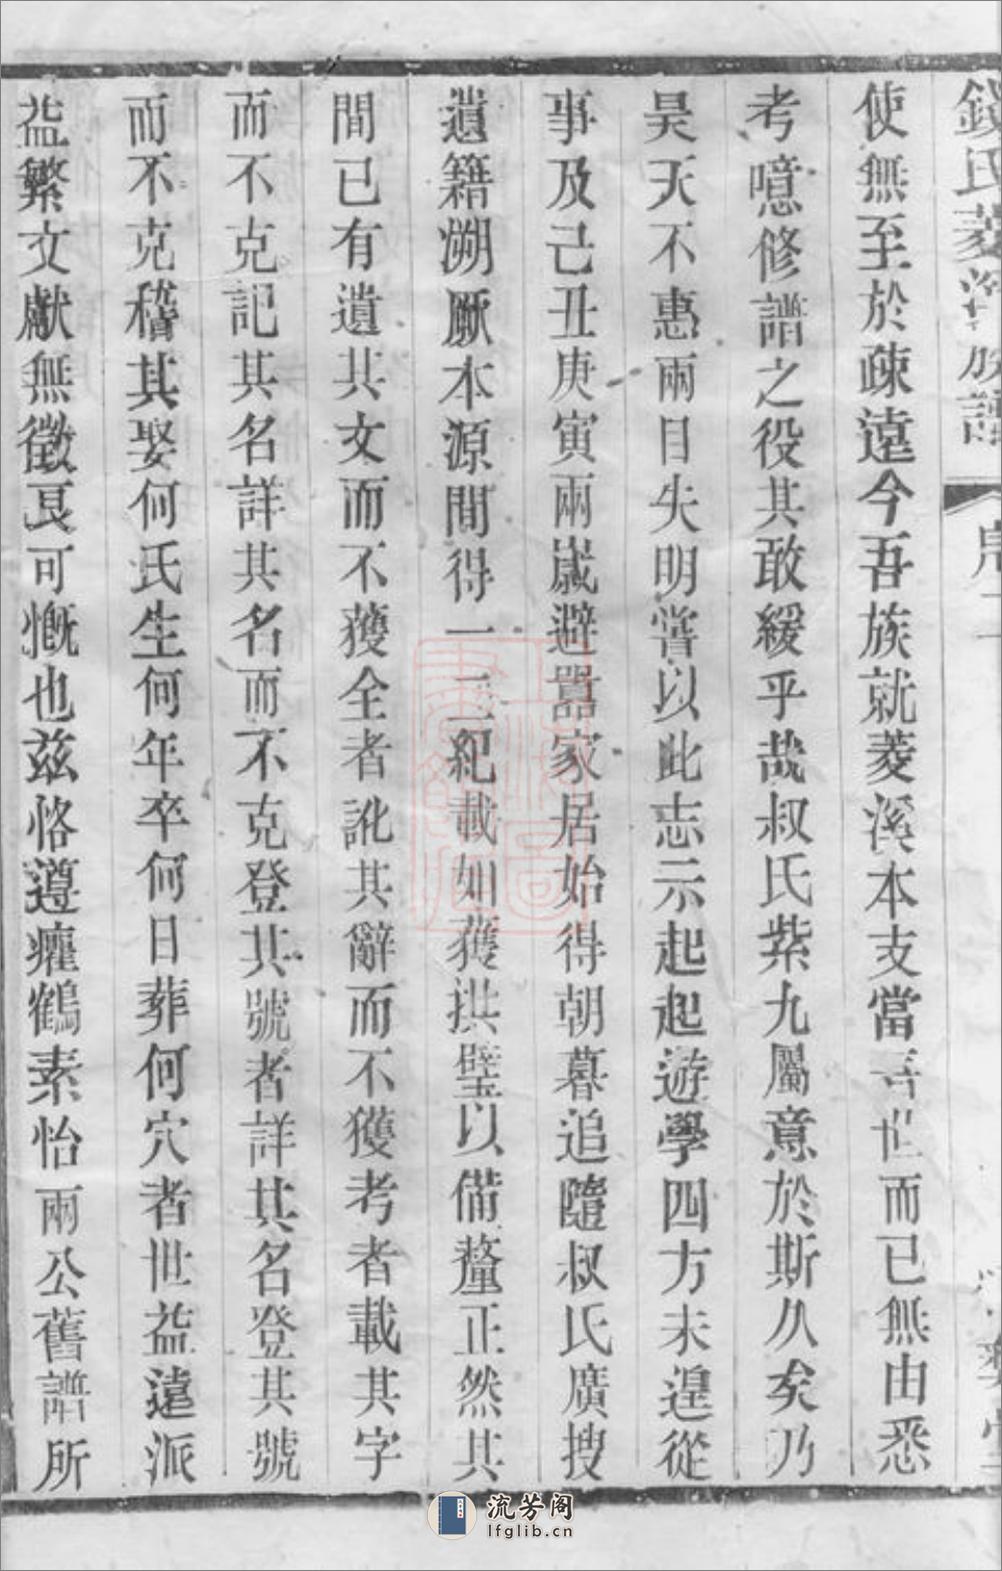 錢氏菱溪族譜 序 二
使無至於疎遠今吾族就菱溪本支當吾世而已無由悉
考噫修譜之役其敢緩乎哉叔氏紫九屬意於斯久矣乃
昊天不惠兩目失明嘗以此志示起起遊學四方未遑從
事及己丑庚寅兩嵗避囂家居始得朝暮追隨叔氏廣搜
遺籍溯厥本源間得一二紀載如獲拱璧以備釐正然其
間已有遺其文而不獲全者訛其辭而不獲考者載其字
而不克記其名詳其名而不克登其號者詳其名登其號
而不克稽其娶何氏生何年卒何日葬何穴者世益遠派
益繁文獻無徵良可慨也茲恪遵癯鶴素怡兩公舊譜所
流芳阁
lfglib.cn